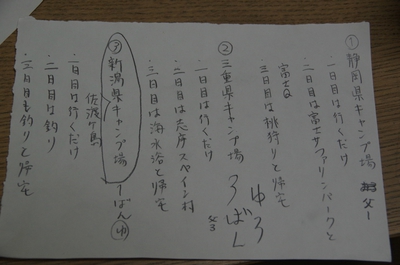 ①静岡県キャンプ場 父1
一日目は行くだけ
二日目は富士サファリンパークと
富士Q
三日目は桃狩りと帰宅
②三重県キャンプ場
一日目は行くだけ
二日目は志摩スペイン村
三日目は海水浴と帰宅
ゆろ
父3
③新潟県キャンプ場 1ばん ゆ
佐渡ヶ島
一日目は行くだけ
二日目は釣り
三日目も釣りと帰宅